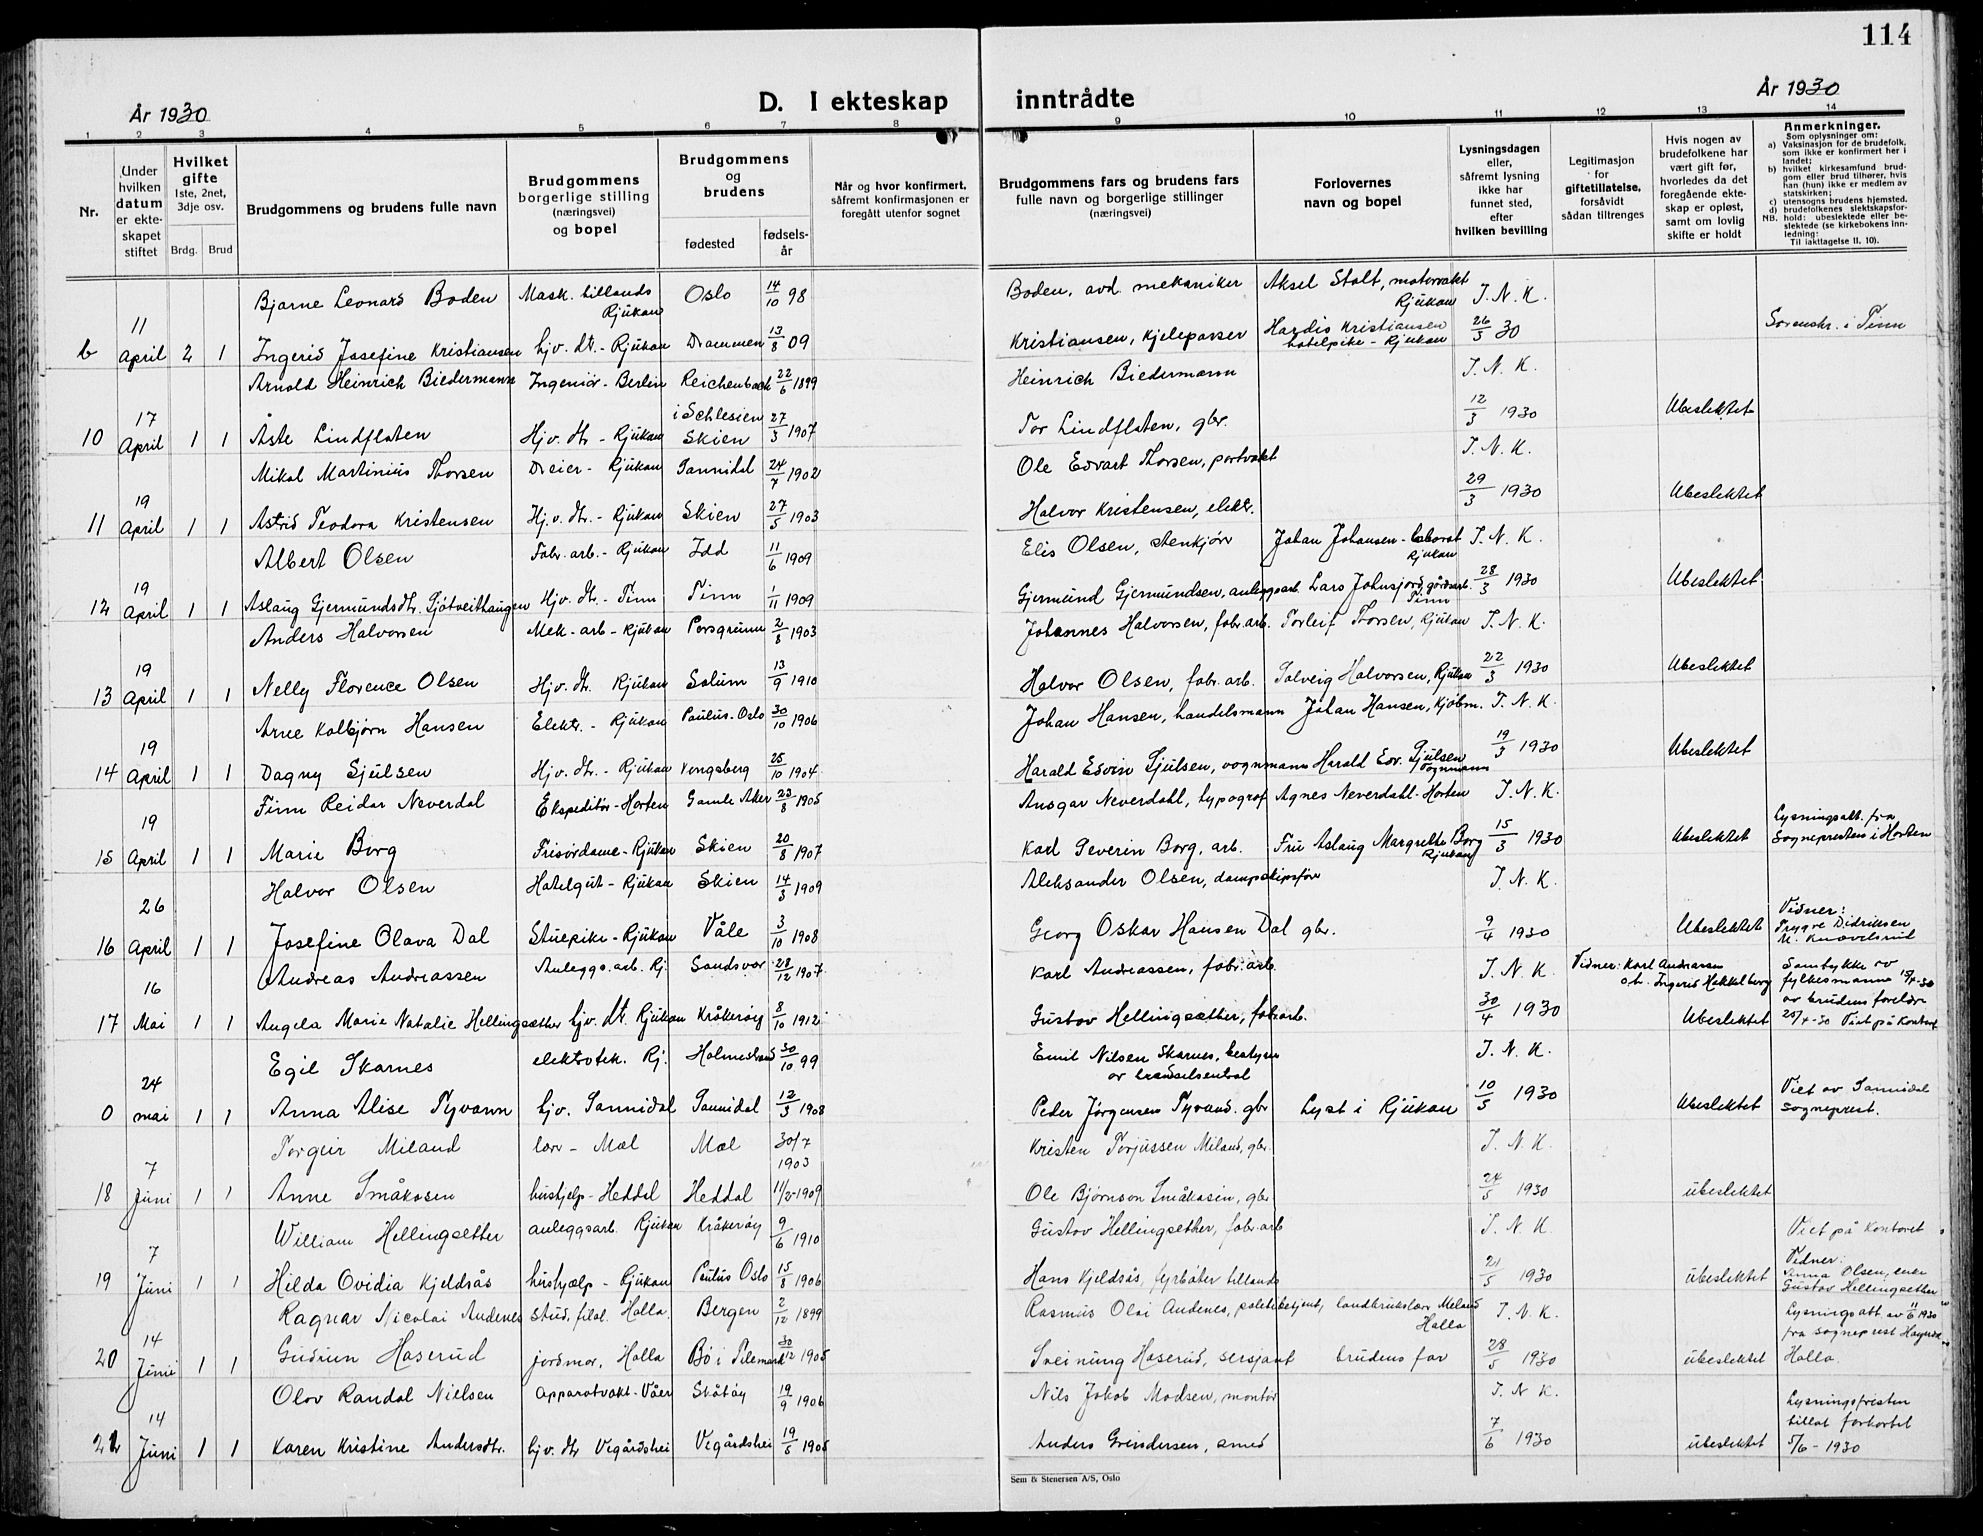 114
År 1930
D. I ekteskap inntrådte
År 1930
1 2 3 4 5 6 7 8 9 10 11 12 13 14
Nr.
Under hvilken datum er ekteskapet stiftet
Hvilket gifte
1ste, 2net, 3dje osv.
Brdg. Brud
Brudgommens og brudens fulle navn
Brudgommens borgerlige stilling (næringsvei) og bopel
Brudgommens og brudens
fødested
fødselsår
Når og hvor konfirmert, såfremt konfirmasjonen er foregått utenfor sognet
Brudgommens fars og brudens fars fulle navn og borgerlige stillinger (næringsvei)
Forlovernes navn og bopel
Lysningsdagen eller, såfremt lysning ikke har funnet sted, efter hvilken bevilling
Legitimasjon for giftetillatelse, forsåvidt sådan tiltrenges
Hvis nogen av brudefolkene har vært gift før, hvorledes da det foregående ekteskap er opløst, samt om lovlig skifte er holdt
Anmerkninger.
Som oplysninger om:
a) Vaksinasjon for de brudefolk, som ikke er konfirmert her i landet;
b) hvilket kirkesamfund brudgom eller brud tilhører, hvis han (hun) ikke er medlem av statskirken;
c) utensogns brudens hjemsted.
d) brudefolkenes slektskapsforhold: ubeslektede eller beslektede (se kirkebokens innledning:
NB. Til iakttagelse II. 10).
Bjarne Leonard Boden Mask. tillands Rjukan Oslo 14/10 98 Boden, avd. mekaniker Aksel Stolt, motorvakt Rjukan I. N. K.
b 11 April 2 1 Ingerid Josefine Kristiansen hjv. dtr. - Rjukan Drammen 13/8 09 Kristiansen, kjelepasser Hardis Kristiansen hotelpike - Rjukan 26/3 30 Sorenskr. i Tinn
Arnold Heinrich Biedermann Ingeniør - Berlin Reichenbach i Schlesien 22/6 1899 Heinrich Biedermann I. N. K.
10 17 April 1 1 Åste Lindflaten Hjv. dtr. - Rjukan Skien 27/3 1907 Tor Lindflaten, gbr. 12/3 1930 Ubeslektet
Mikal Martinius Thorsen Dreier - Rjukan Sannidal 24/7 1902 Ole Edvart Thorsen, portvakt I. N. K.
11 19 April 1 1 Astrid Teodora Kristensen Hjv. dtr. - Rjukan Skien 27/5 1903 Halvor Kristensen, elektr. 29/3 1930 Ubeslektet
Albert Olsen Fabr. arb. - Rjukan Idd 11/6 1909 Elis Olsen, stenkjørr Johan Johansen - laborat Rjukan I. N. K.
12 19 April 1 1 Aslaug Gjermundsdtr. Sjøtveithaugen Hjv. dtr. - Tinn Tinn 1/11 1909 Gjermund Gjermundsen, anleggsarb. Lars Johnsjord gårdsarb. Tinn 28/3 1930 Ubeslektet
Anders Halvorsen Mek. arb - Rjukan Porsgrunn 2/8 1903 Johannes Halvorsen, fabr. arb. Torleif Thorsen, Rjukan I. N. K.
13 19 April 1 1 Nelly Florence Olsen Hjv. dtr. Rjukan Solum 13/9 1910 Halvor Olsen, fabr. arb. Solveig Halvorsen, Rjukan 22/3 1930 Ubeslektet
Arne Kolbjørn Hansen Elektr. - Rjukan Paulus - Oslo 30/10 1906 Johan Hansen, handelsmann Johan Hansen, kjøbm. I. N. K.
14 19 April 1 1 Dagny Sjulsen Hjv. dtr. - Rjukan Kongsberg 25/10 1904 Harald Edvin Sjulsen, vognmann Harald Edv. Sjulsen vognmann 19/3 1930 Ubeslektet
Finn Reidar Neverdal Ekspeditør - Horten Gamle Aker 23/8 1905 Ansgar Neverdahl, typograf Agnes Neverdahl - Horten I. N. K.
15 19 April 1 1 Marie Borg Frisørdame - Rjukan Skien 20/8 1907 Karl Severin Borg, arb. Fru Aslaug Margrethe Borg Rjukan 15/3 1930 Ubeslektet Lysningsatt. fra Sognepresten i Horten
Halvor Olsen Hotelgut - Rjukan Skien 14/3 1909 Aleksander Olsen, dampskipsfør I. N. K.
16 26 April 1 1 Josefine Olava Dal Stuepike - Rjukan Våle 3/10 1908 Georg Oskar Hansen Dal gbr. 9/4 1930 Ubeslektet Vidner: Trygve Didriksen
Andreas Andreassen Anleggs. arb. Rj. Sandsvær 28/12 1907 Karl Andreassen, fabr. arb. I. N. K. Vidner: Karl Andreassen og Ingerid Hekkelberg
17 16 Mai 1 1 Angela Marie Natalie Hellingsæther hjv. dtr. Rjukan Kråkerøy 8/10 1912 Gustav Hellingsæther, fabr. arb. 30/4 1930 Ubeslektet Samtykke av fylkesmann 15/4-30 av brudens foreldre 29/4-30 Viet på kontoret
Egil Skarnes elektrotek. Rj. Holmestrand 30/10 99 Emil Nilsen Skarnes, bestyrer av brændselsentral I. N. K.
0 24 mai 1 1 Anna Alise Tyvann hjv. Sannidal Sannidal 12/3 1908 Peder Jörgensen Tyvand. gbr Lyst i Rjukan 10/5 1930 Ubeslektet Viet av Sannidal sogneprest.
Torgeir Miland lær - Mæl Mæl 30/7 1903 Kristen Torjussen Miland, gbr. I. N. K.
18 7 Juni 1 1 Anne Småkasen hushjelp - Heddal Heddal 11/2-1909 Ole Bjørnson Småkasin, gbr 24/5 1930 ubeslektet
William Hellingsetter anleggsarb. Rjukan Kråkerøy 9/6 1910 Gustav Hellingsether, fabr. arb I. N. K. Viet på kontoret
19 7 Juni 1 1 Hilda Ovidia Kjeldsås hushjælp - Rjukan Paulus Oslo 15/8 1906 Hans Kjeldsås, fyrbøter tillands 21/5 1930 ubeslektet Vidner: Anna Olsen, Gustav Hellingsether
Ragnar Nicolai Andenes stud. filol. Holla Bergen 2/12 1899 Rasmus Olai Andenes, politibetjent, landbrukslær. Meland Holla I. N. K.
20 14 Juni 1 1 Gudrun Haserud jordmor, Holla Bø i Telemark 30/12 1905 Sveinung Haserud, sersjant brudens far 28/5 1930 ubeslektet Lysningsatt. av 11/6 1930 fra sogneprest Holla.
Olav Randal Nielsen apparatvakt - Våer Skåtøy 19/9 1906 Nils Jakob Madsen, montør I. N. K.
21 14 Juni 1 1 Karen Kristine Andersdtr. hjv. dtr Vegårdshei Vegårdshei 19/6 1905 Anders Grindersen, smed 7/6 1930 ubeslektet Lysningsfristen tillat forkortet 5/6 - 1930
Sem & Stenersen A/S, Oslo